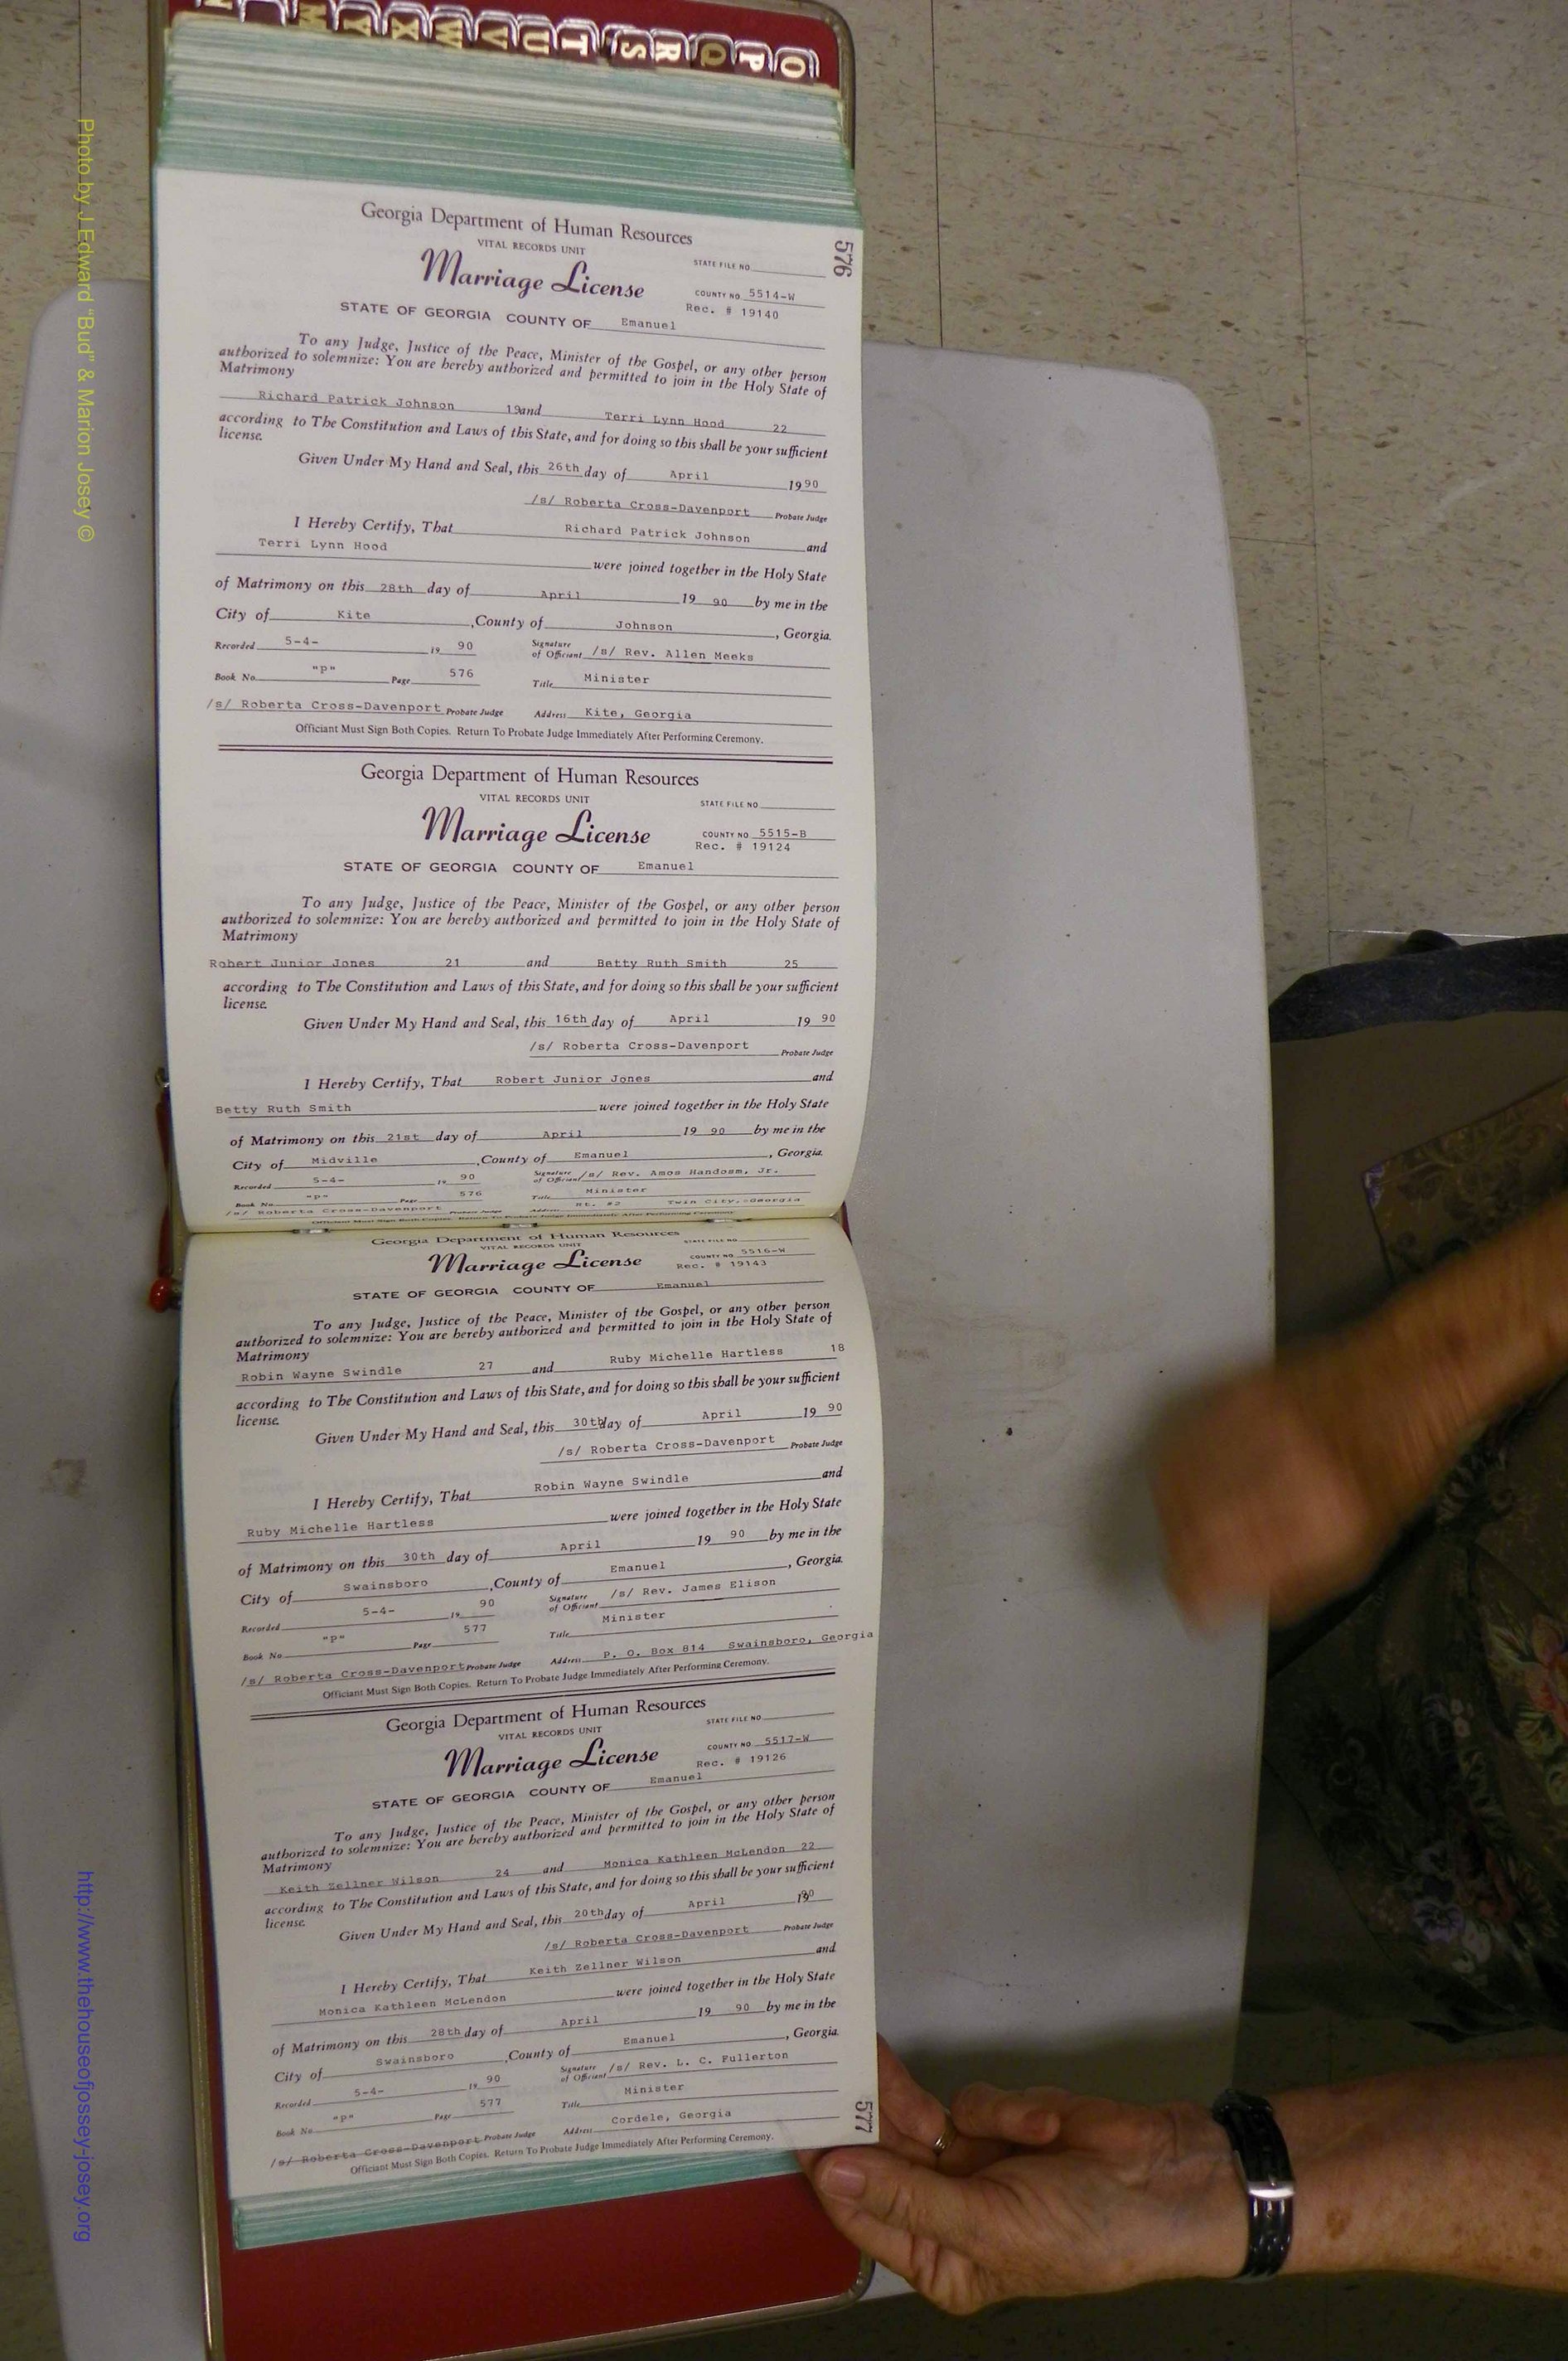 N M Y X W V U T S R Q P O
Photo by J Edward "Bud" & Marion Josey ©
576
Georgia Department of Human Resources
VITAL RECORDS UNIT
STATE FILE NO.
Marriage License
COUNTY NO. 5514-W
Rec. # 19140
STATE OF GEORGIA COUNTY OF Emanuel
To any Judge, Justice of the Peace, Minister of the Gospel, or any other person
authorized to solemnize: You are hereby authorized and permitted to join in the Holy State of
Matrimony
Richard Patrick Johnson 19 and Terri Lynn Hood 22
according to The Constitution and Laws of this State, and for doing so this shall be your sufficient
license.
Given Under My Hand and Seal, this 26th day of April 19 90
/s/ Roberta Cross-Davenport Probate Judge
I Hereby Certify, That Richard Patrick Johnson and
Terri Lynn Hood were joined together in the Holy State
of Matrimony on this 28th day of April 19 90 by me in the
City of Kite, County of Johnson, Georgia.
Recorded 5-4- 19 90 Signature of Officiant /s/ Rev. Allen Meeks
Book No. "P" Page 576 Title Minister
/s/ Roberta Cross-Davenport Probate Judge Address Kite, Georgia
Officiant Must Sign Both Copies. Return To Probate Judge Immediately After Performing Ceremony.
Georgia Department of Human Resources
VITAL RECORDS UNIT
STATE FILE NO.
Marriage License
COUNTY NO 5515-B
Rec. # 19124
STATE OF GEORGIA COUNTY OF Emanuel
To any Judge, Justice of the Peace, Minister of the Gospel, or any other person
authorized to solemnize: You are hereby authorized and permitted to join in the Holy State of
Matrimony
Robert Junior Jones 21 and Betty Ruth Smith 25
according to The Constitution and Laws of this State, and for doing so this shall be your sufficient
license.
Given Under My Hand and Seal, this 16th day of April 19 90
/s/ Roberta Cross-Davenport Probate Judge
I Hereby Certify, That Robert Junior Jones and
Betty Ruth Smith were joined together in the Holy State
of Matrimony on this 21st day of April 19 90 by me in the
City of Midville, County of Emanuel, Georgia.
Recorded 5-4- 19 90 Signature of Officiant /s/ Rev. Amos Handosm, Jr.
Book No. "P" Page 576 Title Minister
/s/ Roberta Cross-Davenport Probate Judge Address Rt. #2 Twin City, Georgia
Officiant Must Sign Both Copies. Return To Probate Judge Immediately After Performing Ceremony.
Georgia Department of Human Resources
VITAL RECORDS UNIT
STATE FILE NO.
Marriage License
COUNTY NO 5516-W
Rec. # 19143
STATE OF GEORGIA COUNTY OF Emanuel
To any Judge, Justice of the Peace, Minister of the Gospel, or any other person
authorized to solemnize: You are hereby authorized and permitted to join in the Holy State of
Matrimony
Robin Wayne Swindle 27 and Ruby Michelle Hartless 18
according to The Constitution and Laws of this State, and for doing so this shall be your sufficient
license.
Given Under My Hand and Seal, this 30th day of April 19 90
/s/ Roberta Cross-Davenport Probate Judge
I Hereby Certify, That Robin Wayne Swindle and
Ruby Michelle Hartless were joined together in the Holy State
of Matrimony on this 30th day of April 19 90 by me in the
City of Swainsboro, County of Emanuel, Georgia.
Recorded 5-4- 19 90 Signature of Officiant /s/ Rev. James Elison
Book No. "P" Page 577 Title Minister
/s/ Roberta Cross-Davenport Probate Judge Address P. O. Box 814 Swainsboro, Georgia
Officiant Must Sign Both Copies. Return To Probate Judge Immediately After Performing Ceremony.
Georgia Department of Human Resources
VITAL RECORDS UNIT
STATE FILE NO.
Marriage License
COUNTY NO 5517-W
Rec. # 19126
STATE OF GEORGIA COUNTY OF Emanuel
To any Judge, Justice of the Peace, Minister of the Gospel, or any other person
authorized to solemnize: You are hereby authorized and permitted to join in the Holy State of
Matrimony
Keith Zellner Wilson 24 and Monica Kathleen McLendon 22
according to The Constitution and Laws of this State, and for doing so this shall be your sufficient
license.
Given Under My Hand and Seal, this 20th day of April 1990
/s/ Roberta Cross-Davenport Probate Judge
I Hereby Certify, That Keith Zellner Wilson and
Monica Kathleen McLendon were joined together in the Holy State
of Matrimony on this 28th day of April 19 90 by me in the
City of Swainsboro, County of Emanuel, Georgia.
Recorded 5-4- 19 90 Signature of Officiant /s/ Rev. L. C. Fullerton
Book No. "P" Page 577 Title Minister
/s/ Roberta Cross-Davenport Probate Judge Address Cordele, Georgia
Officiant Must Sign Both Copies. Return To Probate Judge Immediately After Performing Ceremony.
577
http://www.thehouseofjossey-josey.org